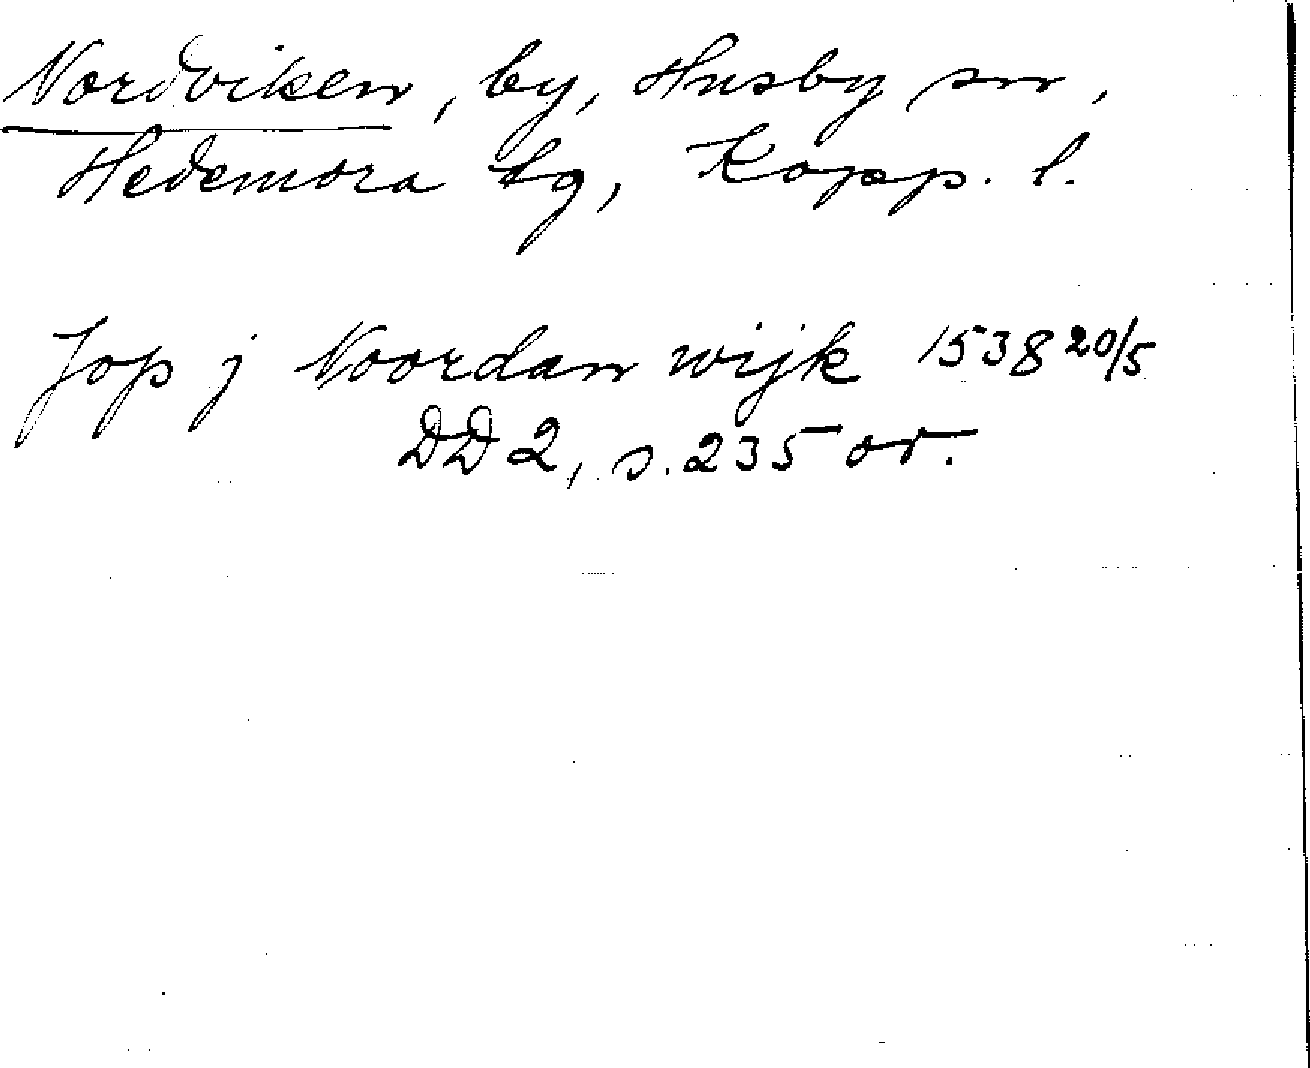 Nordviken, by, Husby sn,
Hedemora tg, Kopp. l.
Jop j Noordan wijk 1538 20/5
DD 2, s. 235 or.